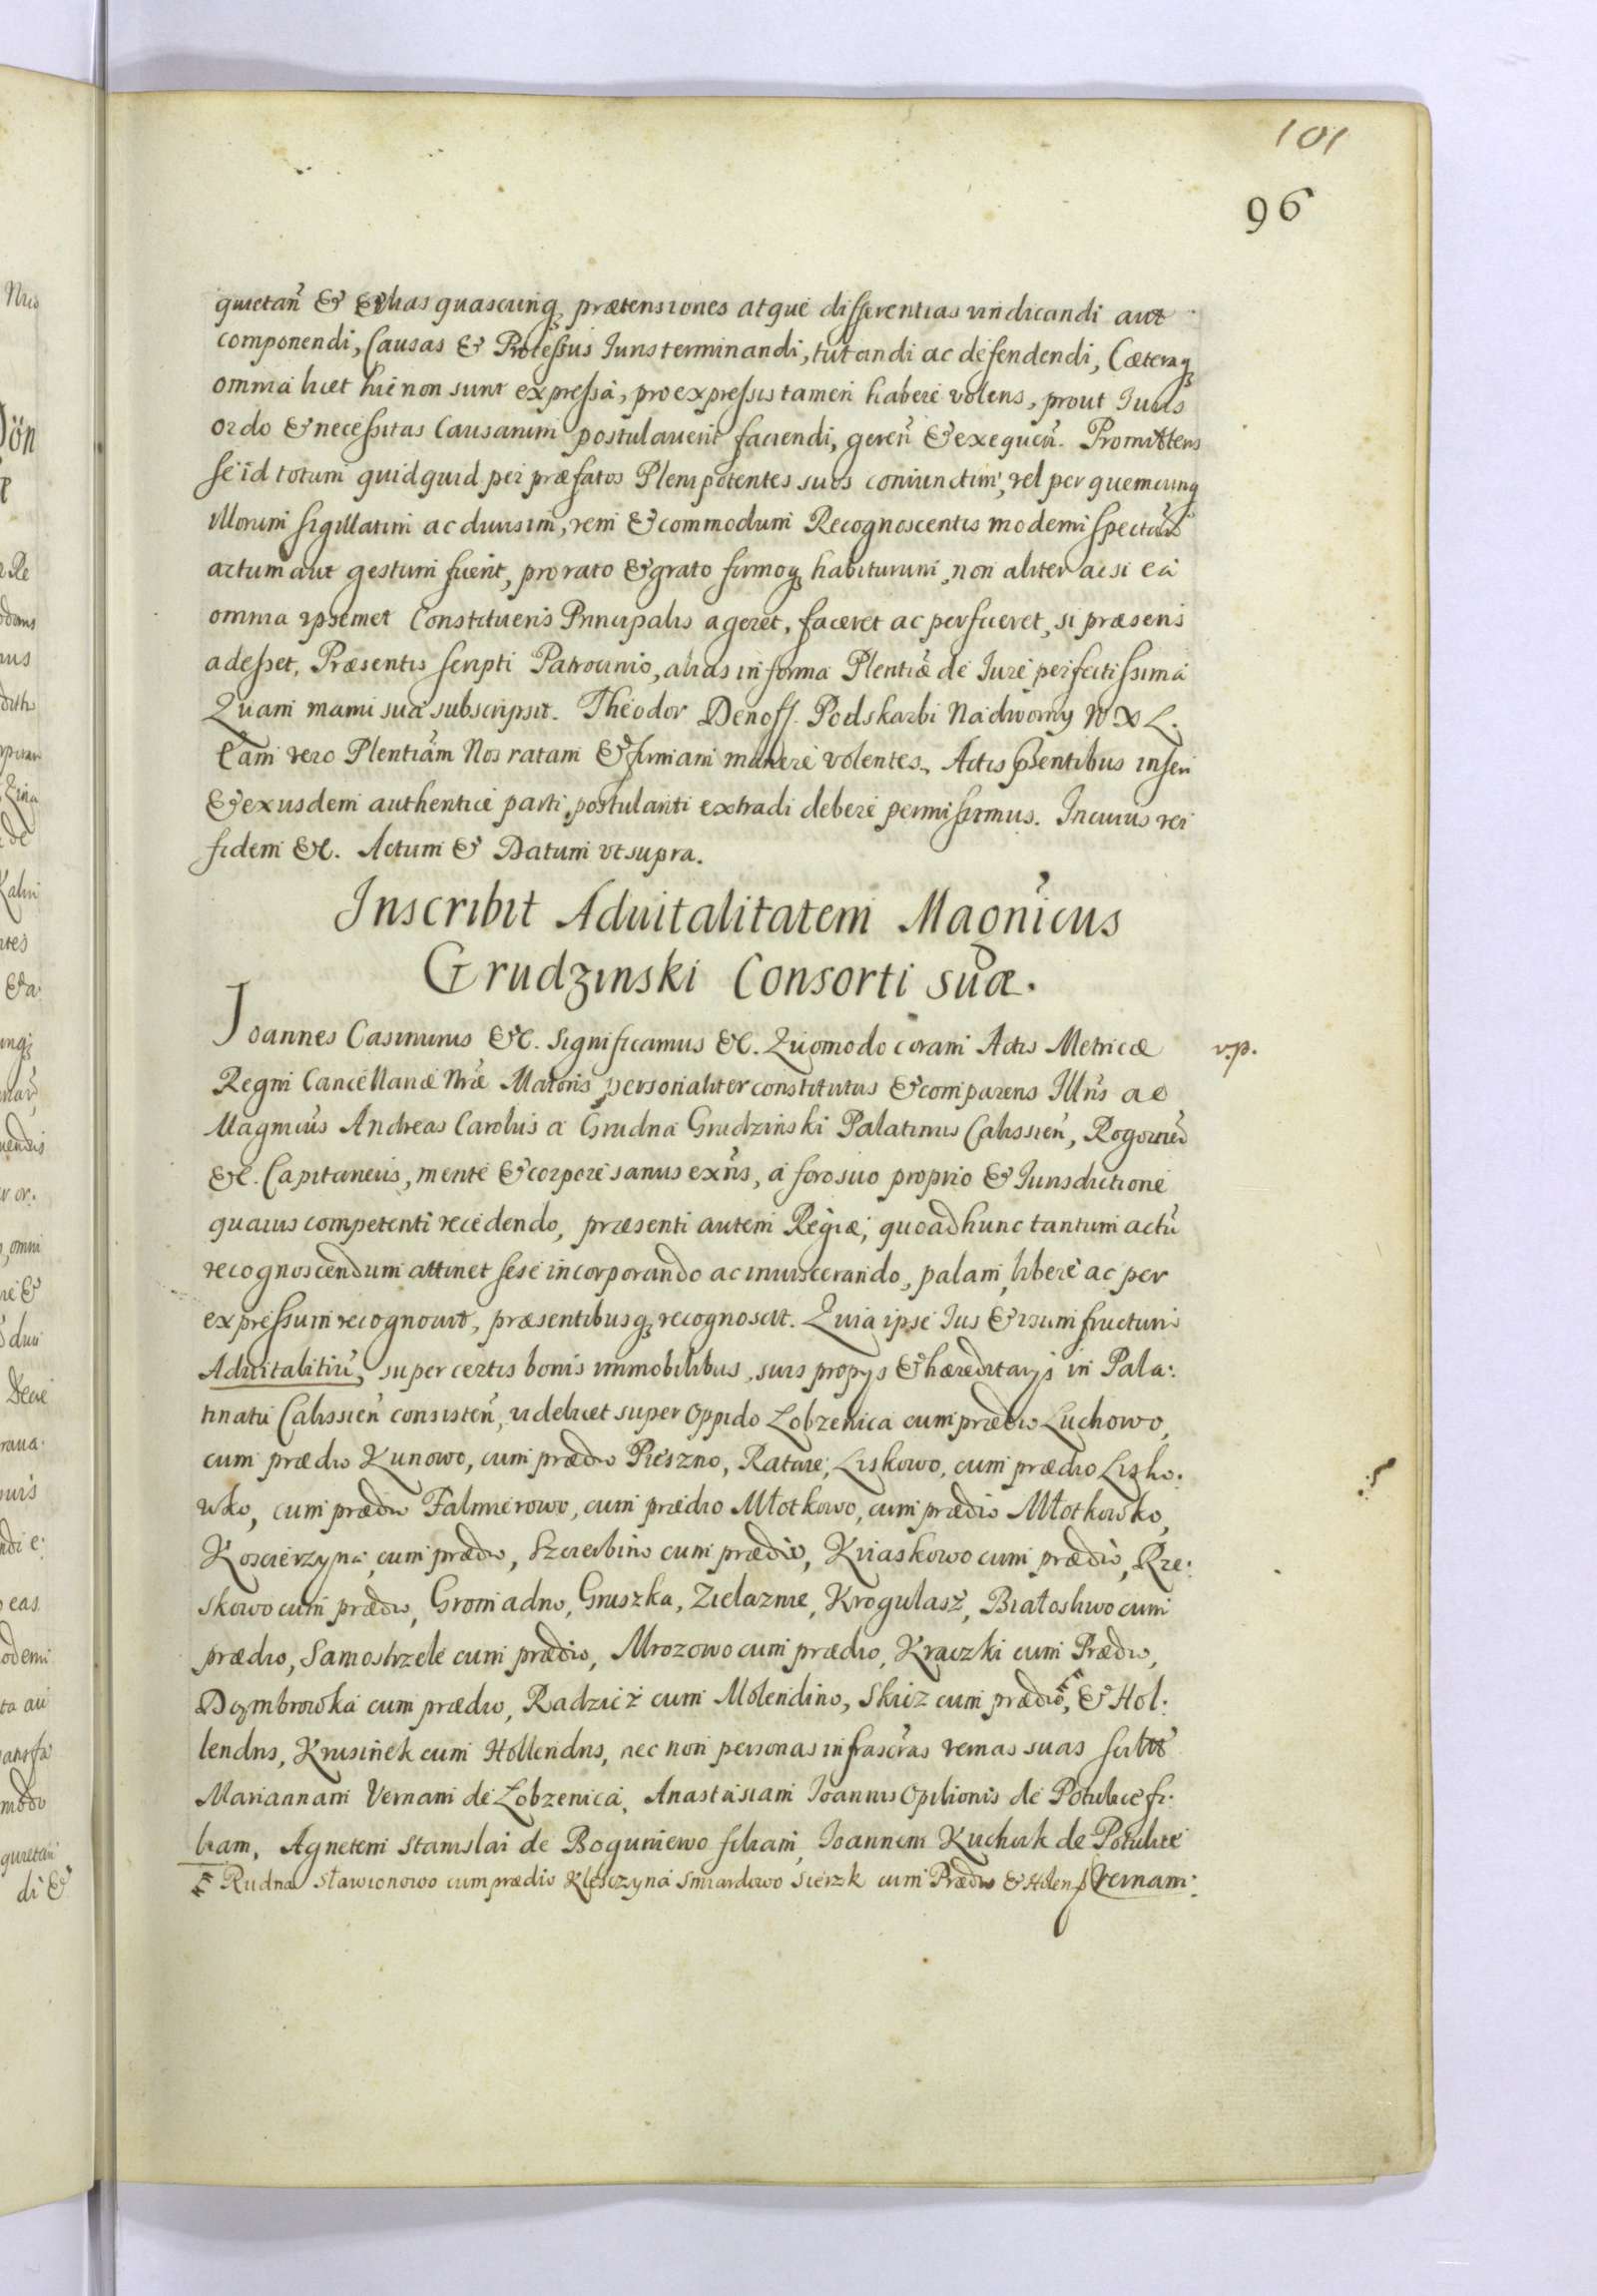 101
96
quietañ & &lias quascunq prætensiones atque differentias vindicandi aut
componendi, Causas & Processus Iuris terminandi, tutandi ac defendendi, Cæteraq
omnia licet hic non sunt expressa, pro expressis tamen habere volens, prout Iuris
ordo & necessitas Causarum postulaverit faciendi, gereñ & exequeñ. Promittens
se id totum quidquid per præfatos Plenipotentes suos coniunctim, vel per quemcunq
illorum sigillatim ac divisim, rem & commodum Recognoscentis moderni
actum aut gestum fuerit, pro rato & grato firmoq habiturum, non aliter ac si ea
omnia ipsemet Constituens Principalis ageret, faceret ac perficeret, si præsens
adesset. Præsentis scripti Patrocinio, alias in forma Plentiæ de Iure perfectissima
Quam manu sua subscripsit. Theodor Denoff. Podskarbi Nadworny W X L.
Eam vero Plentiam Nos ratam & firmam manere volentes, Actis pñtibus inseri
& ex usdem authentice parti postulanti extradi debere permisimus. In cuius rei
fidem &c. Actum & Datum vt supra.
Inscribit Advitalitatem Magnicus
Grudzinski Consorti suæ.
Ioannes Casimirus &c. Significamus &c. Quomodo coram Actis Metricæ
v.p.
Regni Cancellariæ Nræ Maioris personaliter constitutus & comparens Illñs ac
Magnicus Andreas Carolus a Grudna Grudzinski Palatinus Calissieñ, Rogozneñ
&c. Capitaneus, mente & corpore sanus exñs, a foro suo proprio & Iurisdictione
quavis competenti recedendo, præsenti autem Regiæ, quoad hunc tantum actũ
recognoscendum attinet sese incorporando ac inviscerando, palam, libere ac per
expressum recognovit, præsentibusq recognoscit. Quia ipse Ius & vsumfructum
Advitalitiũ, super certis bonis immobilibus, suis propijs & hæreditarijs in Pala:
tinatu Calissieñ consisteñ, videlicet super Oppido Lobzenica cum prædio Luchowo,
cum prædio Kunowo, cum prædio Pieszno, Rataie, Liskowo, cum prædio Lisko:
wko, cum prædio Falmierowo, cum prædio Młotkowo, cum prædio Młotkowko,
Koscierzyna cum prædio, Szczerbino cum prædio, Kiiaskowo cum prædio, Rze:
skowo cum prædio, Gromadno, Gruszka, Zielaznie, Krogulasz, Białosliwo cum
prædio, Samostrzele cum prædio, Mrozowo cum prædio, Kraczki cum Prædio,
Dombrowka cum prædio, Radzicż cum Molendino, Skicz cum prædio, & Hol:
lendris, Krusinek cum Hollendris, nec non personas infrascras vernas suas scilicet
Mariannam Vernam de Lobzenica, Anastasiam Ioannis Opilionis de Potulice fi:
liam, Agnetem Stanislai de Boguniewo filiam, Ioannem Kuchcik de Potulice
Rudna Sławionowo cum prædio Klesczyna Smiardowo Sierzk cum Prædio & Holen
Vernam: